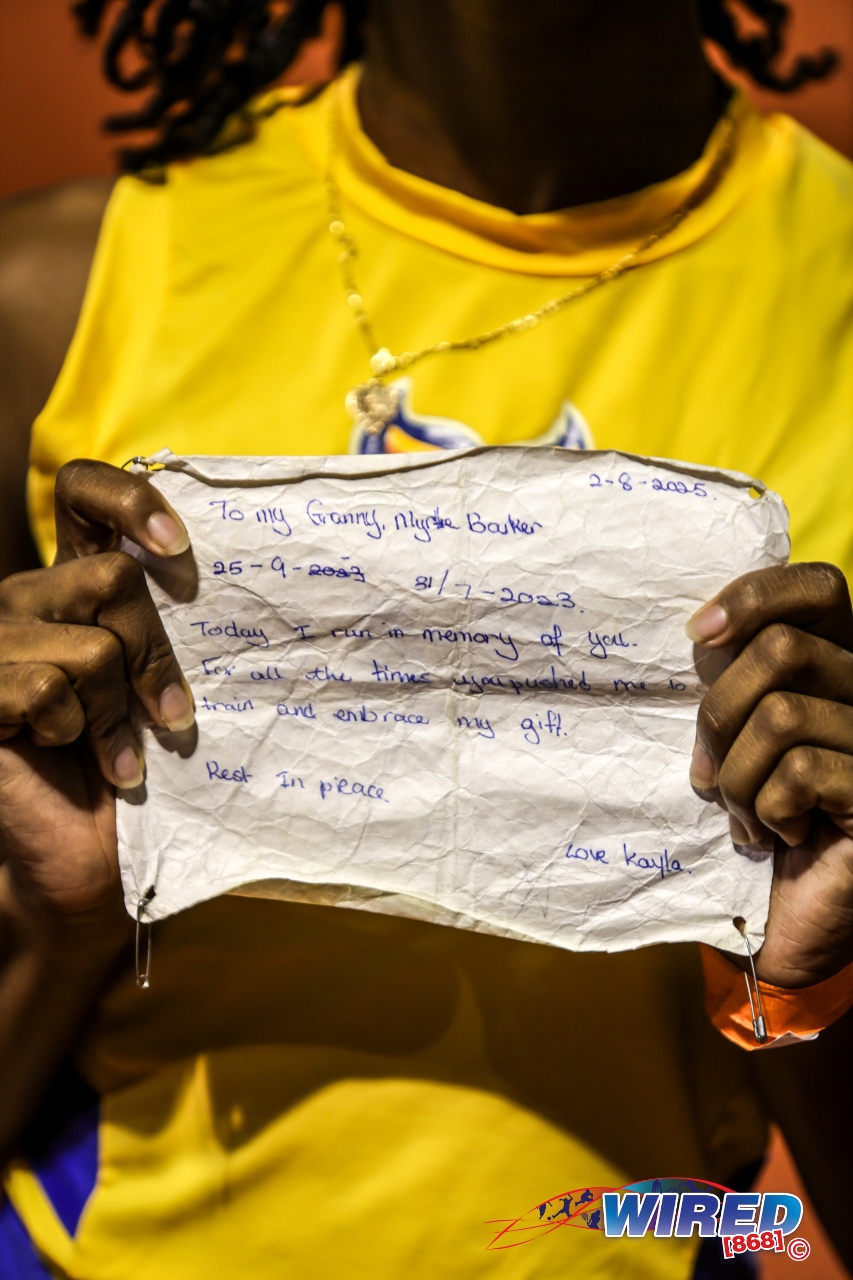 2-8-2025.
To my Granny, Myrtle Barker
25-9-2023 31/7-2023.
Today I run in memory of you.
For all the times you pushed me to
train and enbrace my gift.
Rest In peace.
Love Kayla.
WIRED
[868]©